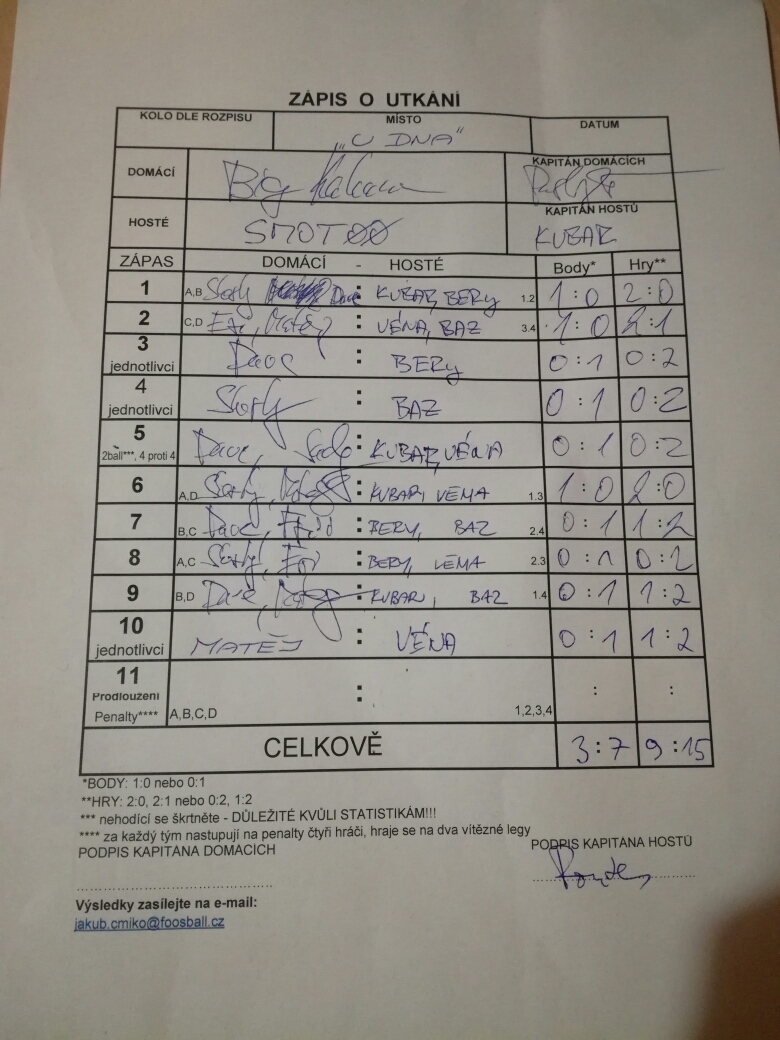 ZÁPIS O UTKÁNÍ
KOLO DLE ROZPISU
MÍSTO
„U DNA"
DATUM
DOMÁCÍ
Big
KAPITÁN DOMÁCÍCH
HOSTÉ
SMOTØØ
KAPITÁN HOSTŮ
KUBAR
ZÁPAS DOMÁCÍ - HOSTÉ Body* Hry**
1 A,B Dave : KUBAR, BERY 1.2 1:0 2:0
2 C,D Matěj : VÉNA, BAZ 3.4 1:0 2:1
3 jednotlivci Dave : BERY 0:1 0:2
4 jednotlivci : BAZ 0:1 0:2
5 2ball***, 4 proti 4 Dave, : KUBAR, VÉNA 0:1 0:2
6 A,D : KUBAR, VÉNA 1.3 1:0 2:0
7 B,C Dave, : BERY, BAZ 2.4 0:1 1:2
8 A,C : BERY, VÉNA 2.3 0:1 0:2
9 B,D Dave, : KUBAR, BAZ 1.4 0:1 1:2
10 jednotlivci MATĚJ : VÉNA 0:1 1:2
11 Prodloužení Penalty**** A,B,C,D : 1,2,3,4 : :
CELKOVĚ 3:7 9:15
*BODY: 1:0 nebo 0:1
**HRY: 2:0, 2:1 nebo 0:2, 1:2
*** nehodící se škrtněte - DŮLEŽITÉ KVŮLI STATISTIKÁM!!!
**** za každý tým nastupují na penalty čtyři hráči, hraje se na dva vítězné legy
PODPIS KAPITÁNA DOMÁCÍCH
PODPIS KAPITÁNA HOSTŮ
Výsledky zasílejte na e-mail:
jakub.cmiko@foosball.cz